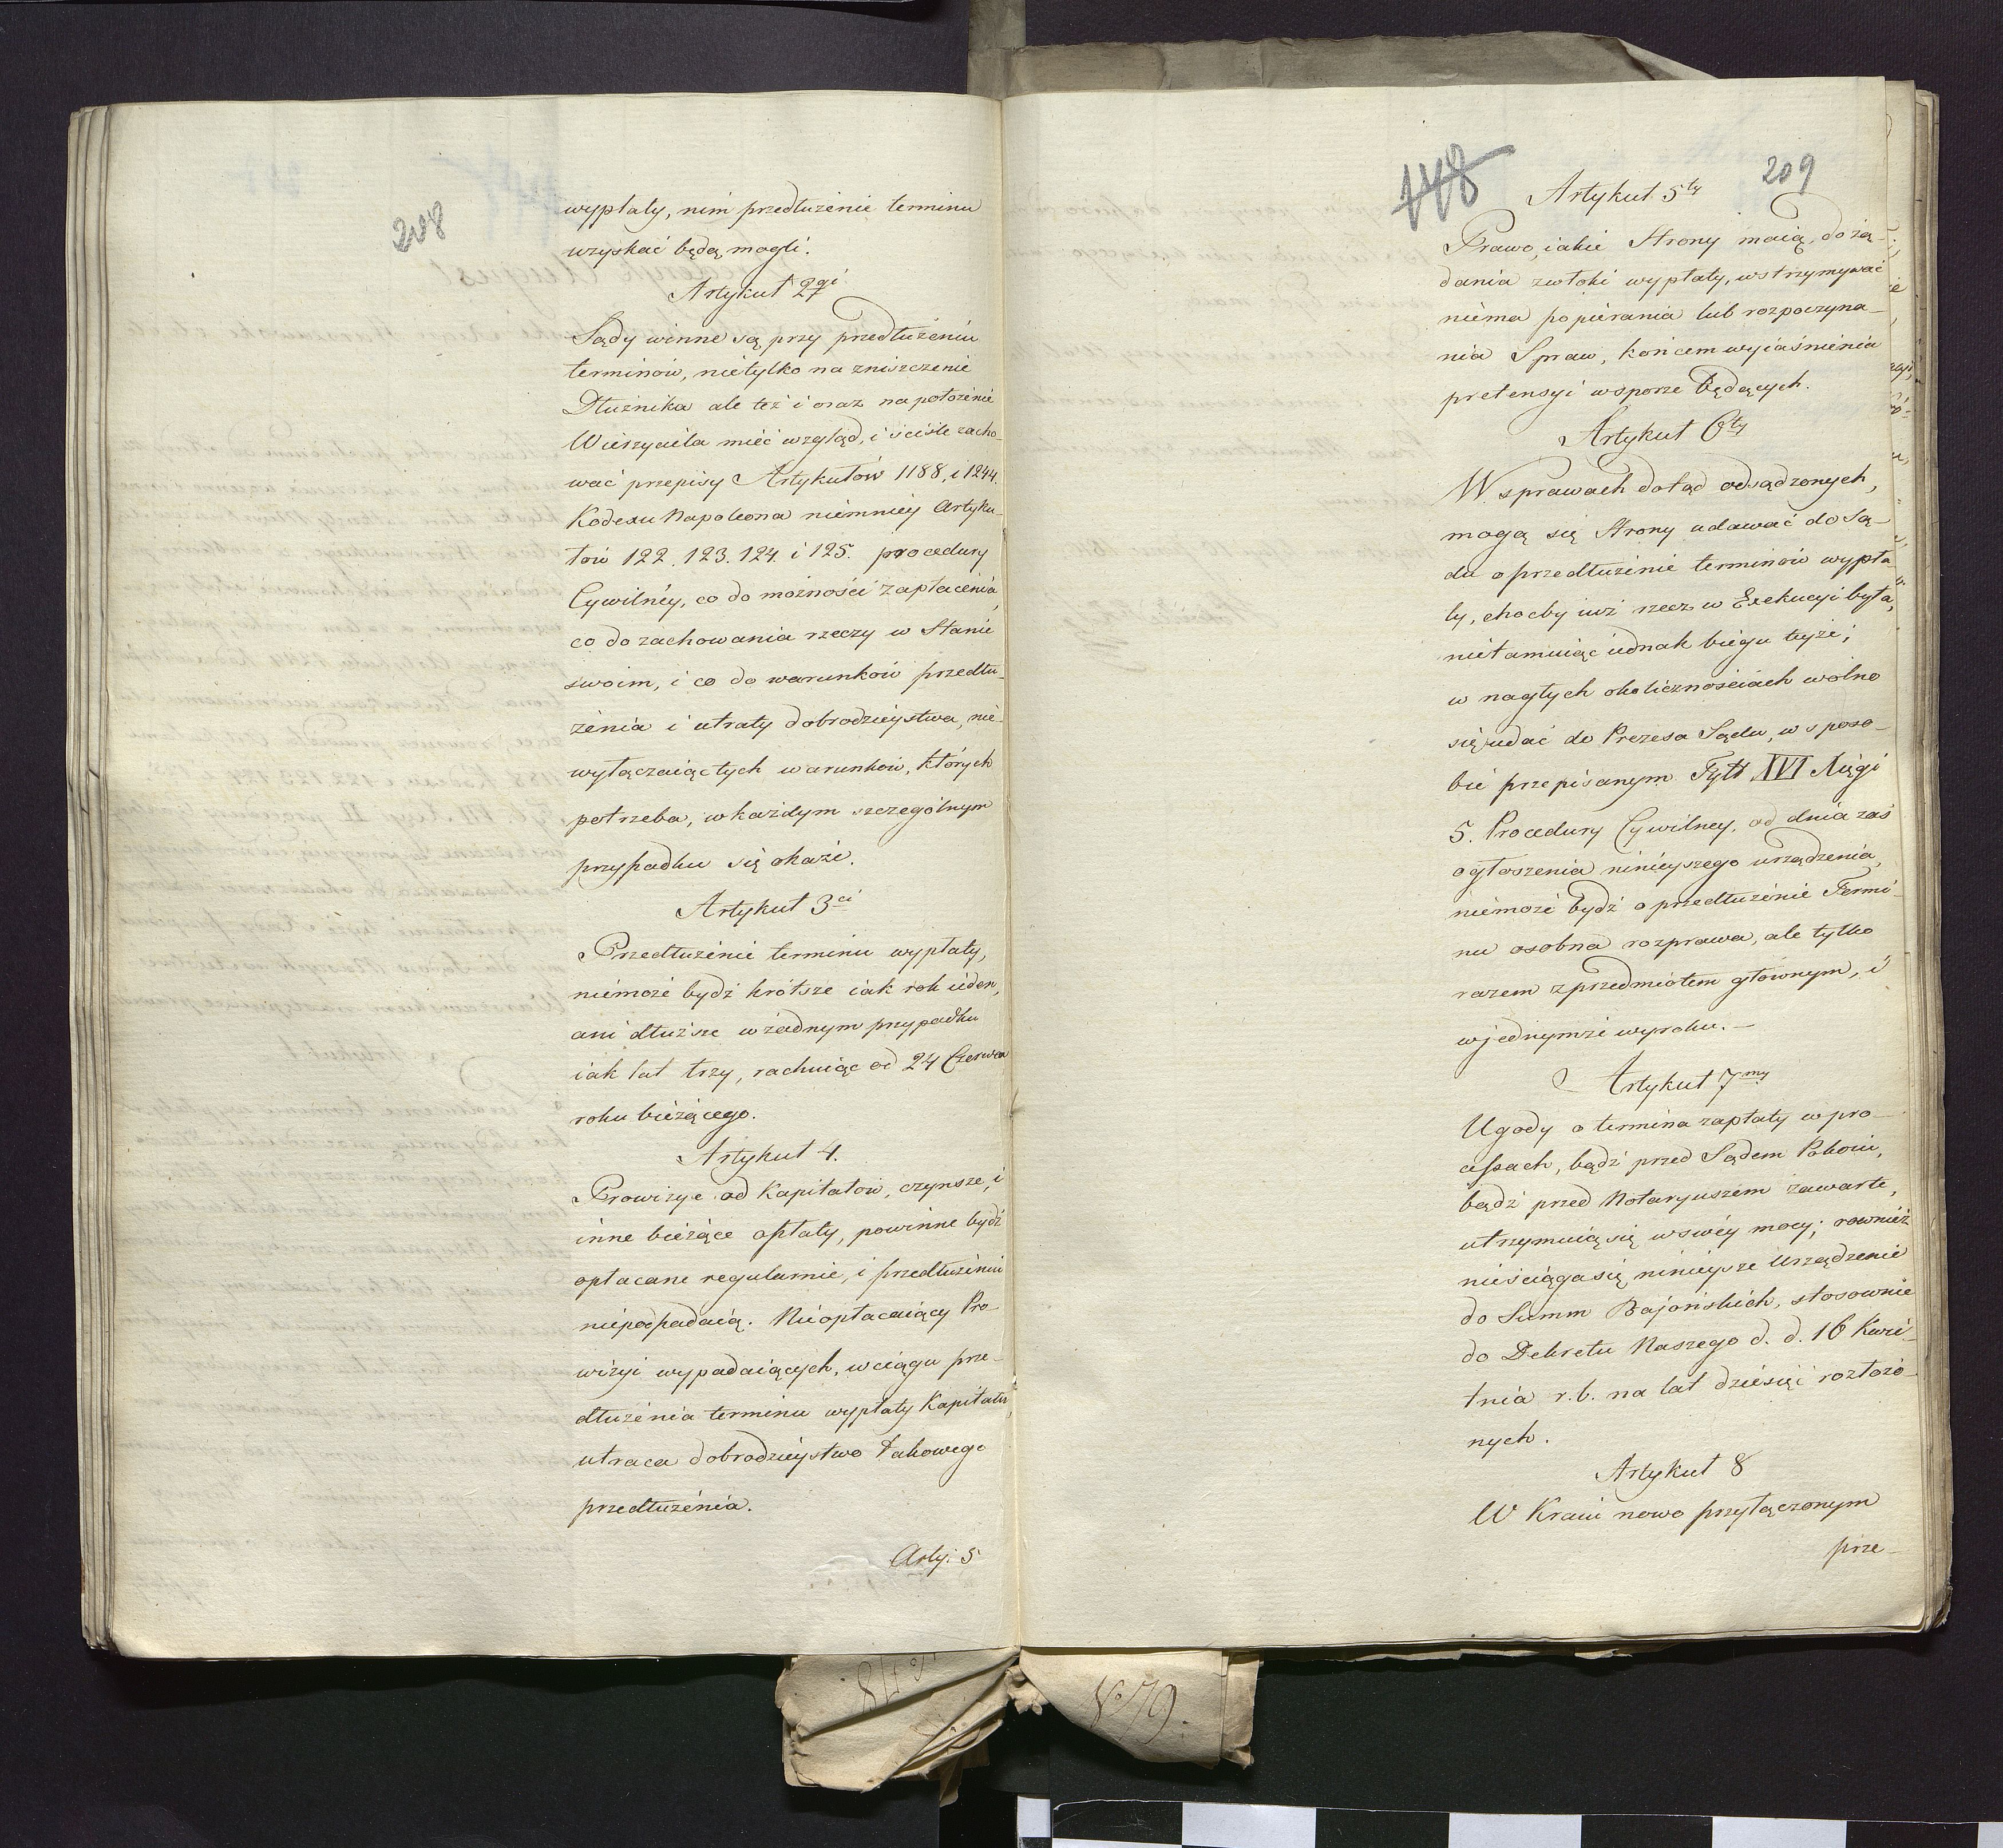 208
wypłaty, nim przedłużenie terminu
uzyskać będą mogli.
Artykuł 2gi
Sądy winne są, przy przedłużeniu
terminów, nietylko na zniszczenie
Dłużnika ale też i oraz na położenie
Wierzyciela mieć wzgląd, i ściśle zacho-
wać przepisy Artykułów 1188, i 1244.
Kodexu Napoleona niemniey Artyku-
łów 122. 123. 124. i 125. procedury
Cywilnéy, co do możności zapłacenia,
co do zachowania rzeczy w Stanie
swoim, i co do warunków przedłu-
żenia i utraty dobrodzieystwa, nie-
wyłączaiąc tych warunków, których
potrzeba, w każdym szczególnym
przypadku się okaże.
Artykuł 3ci
Przedłużenie terminu wypłaty,
niemoże bydź krótsze iak rok ieden,
ani dłuższe w żadnym przypadku
iak lat trzy, rachuiąc od 24 Czerwca
roku bieżącego.
Artykuł 4.
Prowizye od Kapitałów, czynsze, i
inne bieżące opłaty, powinne bydź
opłacane regularnie, i przedłużeniu
niepodpadaią. Nieopłacaiący Pro-
wizyi wypadaiących, w ciągu prze-
dłużenia terminu wypłaty Kapitału,
utraca dobrodzieystwo takowego
przedłużenia.
Arty: 5
118
209
Artykuł 5ty
Prawo, iakie Strony maią, do żą-
dania zwłoki wypłaty, wstrzymywać
niema popierania lub rozpoczyna-
nia Spraw, końcem wyiaśnienia
pretensyi w sporze będących.
Artykuł 6ty
W sprawach dotąd odsądzonych,
mogą się Strony udawać do Są-
du o przedłużenie terminów wypła-
ty, choćby iuż rzecz w Exekucyi była,
nietamuiąc iednak biegu teyże;
w nagłych okolicznościach wolno
się udać do Prezesa Sądu, w sposo-
bie przepisanym Tytł XVI Xięgi
5. Procedury Cywilney, od dnia zaś
ogłoszenia ninieyszego urządzenia,
niemoże bydź o przedłużenie Termi-
nu osobna rozprawa, ale tylko
razem z przedmiotem głównym, i
w jednymże wyroku. —
Artykuł 7my
Ugody o termina zapłaty w pro-
cessach, bądź przed Sądem Pokoiu,
bądź przed Notaryuszem zawarte,
utrzymuią się w swéy mocy; również
nieściąga się, ninieysze Urządzenie
do Summ Bajońskich, stosownie
do Dekretu Naszego d. d. 16 Kwie-
tnia r. b. na lat dziesięć rozłożo-
nych.
Artykuł 8
W Kraiu nowo przyłączonym
prze-
№ 79.